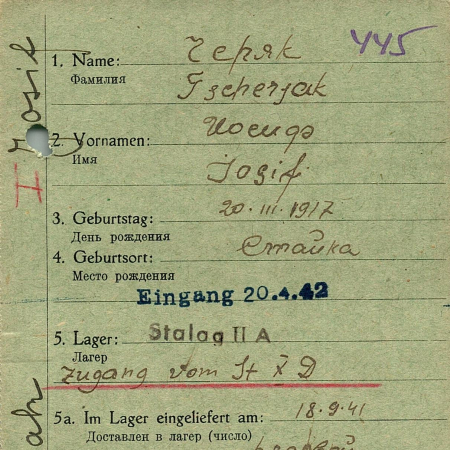 445
1. Name: Черяк
Фамилия
Tscherjak
2. Vornamen: Иосиф
Имя
Josif
3. Geburtstag: 20.III.1917
День рождения
4. Geburtsort: Стайка
Место рождения
Eingang 20.4.42
5. Lager: Stalag II A
Лагер
Zugang vom St X D
5a. Im Lager eingeliefert am: 18.9.41
Доставлен в лагер (число)